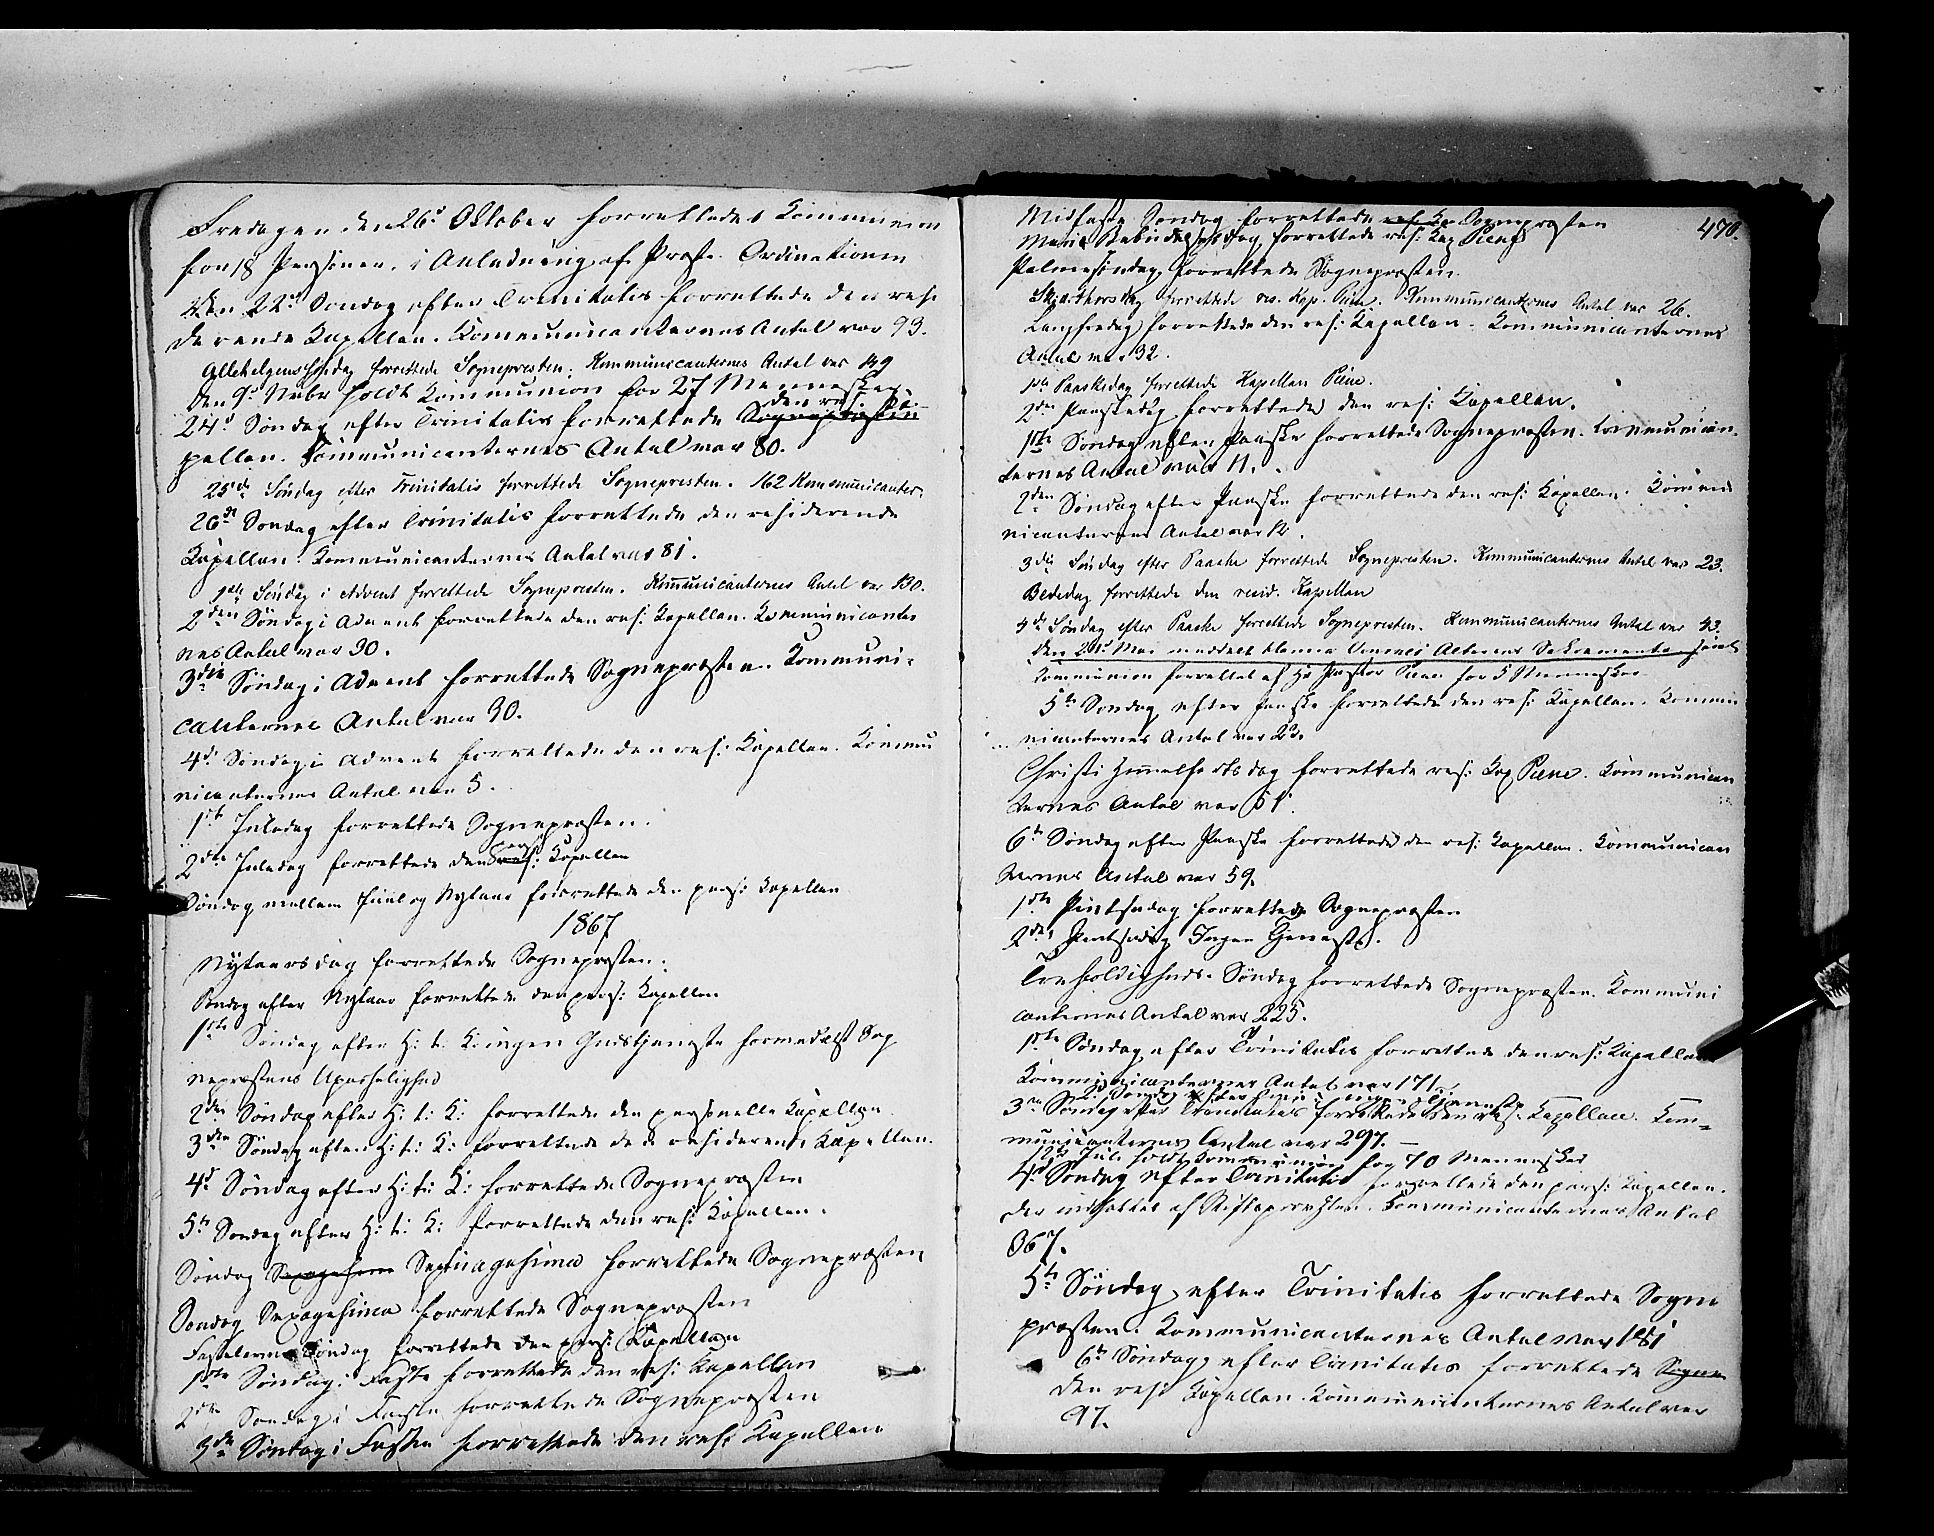 Fredagen den 26d Oktober forrettedes Kommunion
for 18 Personer, i Anledning af Præste Ordinationen
den 22d Søndag efter Trinitatis forrettede den resi
derende Kapellan. Kommunicanternes Antal var 93.
Allehelgens Søndag forrettede Sognepresten. Kommunicanternes Antal var 149
Den 9d Novbr holdt Kommunion for 27 Mennesker.
den res. Ka-
24d Søndag efter Trinitatis forrettede Sognepræsten
pellan. Kommunicanternes Antal var 80.
25de Søndag efter Trinitatis forrettede Sognepresten. 162 Kommunicanter.
26de Søndag efter Trinitatis forrettede den residerende
Kapellan. Kommunicanternes Antal var 81.
1ste Søndag i Advent forrettede Sognepresten. Kommunicanternes Antal var 130.
2den Søndag i Advent forrettede den res: Kapellan. Kommunicanter
nes Antal var 30.
3die Søndag i Advent forrettede Sognepræsten. Kommuni-
canternes Antal var 30.
4d Søndag i Advent forrettede den res: Kapellan. Kommu
nicanternes Antal var 5.
1ste Juledag forrettede Sognepræsten.
pers
2den Juledag forrettede den res: Kapellan
Søndag mellem Juul og Nytaar forrettede den pers: Kapellan
1867
Nytaarsdag forrettede Sognepræsten.
Søndag efter Nytaar forrettede den pers: Kapellan
1ste Søndag efter H: t: K: ingen Gudstjeneste formedelst Sog
nepræstens Upasselighed
2den Søndag efter H: t: K: forrettede den personelle Kapellan
3die Søndag efter H: t: K: forrettede de residerende Kapellan.
4d Søndag efter H: t: K: forrettede Sognepræsten
5te Søndag efter H: t: K: forrettede den res: Kapellan.
Søndag Sexagesima Septuagesima forrettede Sognepræsten
Søndag Sexagesima forrettede Sognepræsten
Fastelavns Søndag forrettede den pers: Kapellan
1ste Søndag i Faste forrettede den res: Kapellan
2den Søndag i Faste forrettede Sognepræsten
3die Søndag i Fasten forrettede den res: Kapellan
470.
Midfaste Søndag forrettede res: Ka Sognepræsten
Maria Bebudelsesdag forrettede res: Kap Piene
Palmesøndag forrettede Sognepræsten.
Skjærthorsdag forrettede res. Kap. Piene. Kommunicanternes Antal var 26.
Langfredag forrettede den res: Kapellan. Kommunicanternes
Antal var 32.
1ste Paaskedag forrettede Kapellan Piene.
2den Paaskedag forrettede den res: Kapellan.
1ste Søndag efter Paaske forrettede Sognepræsten. Communican-
ternes Antal var 11.
2den Søndag efter Paaske forrettede den res: Kapellan. Kommu
nicanternes Antal var 12.
3die Søndag efter Paaske forrettede Sognepresten. Kommunicanternes Antal var 23.
Bededag forrettede den resid. Kapellan
4de Søndag efter Paaske forrettede Sognepresten. Kommunicanternes Antal var 43.
Den 21d Mai meddelt Alterens Sakramente
Kommunion forrettet af Hr Pastor Piene for 5 Mennesker
5te Søndag efter Paaske forrettede den res: Kapellan. Kommu
nicanternes Antal var 22.
Christi Himmelfartsdag forrettede res: Kap Piene. Kommunican
ternes Antal var 51.
6te Søndag efter Paaske forrettede den res: Kapellan. Kommunican
ternes Antal var 59.
1ste Pintsedag forrettede Sognepræsten
2den Pintsedag Ingen Tjeneste.
Trefoldigheds-Søndag forrettede Sognepræsten. Kommuni
canternes Antal var 225.
1ste Søndag efter Trinitatis forrettede den res: Kapellan
Kommunicanternes Antal var 171.
2d Søndag efter Trini: ingen Tjeneste
3die Søndag efter Trinitatis forrettede den res. Kapellan. Kom-
municanternes Antal var 297. —
12te Juli holdt Kommunion for 70 Mennesker
4de Søndag efter Trinitatis forrettede den pers: Kapellan.
der indsattes af Stiftsprovsten. Kommunicanternes Antal
367.
5te Søndag efter Trinitatis forrettede Sogne
præsten. Kommunicanternes Antal var 181
6te Søndag efter Trinitatis forrettede Sogne
den res: Kapellan. Kommunicanternes Antal var
97.